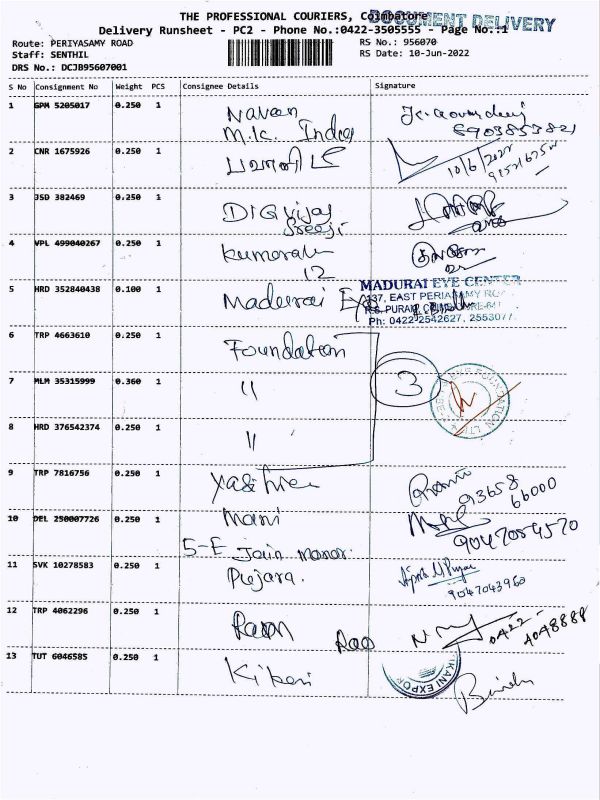 THE PROFESSIONAL COURIERS, Coimbatore
DOCUMENT DELIVERY
Delivery Runsheet - PC2 - Phone No.:0422-3505555 - Page No.:1
Route: PERIYASAMY ROAD RS No.: 956070
Staff: SENTHIL RS Date: 10-Jun-2022
DRS No.: DCJB95607001
S No Consignment No Weight PCS Consignee Details Signature
1 GPM 5205017 0.250 1 Naveen
M.K. India
6903853821
2 CNR 1675926 0.250 1
10/6/2022
3 JSD 382469 0.250 1 DIGvijay
Sreeji
4 VPL 499040267 0.250 1 Kumaran
12
5 HRD 352840438 0.100 1 Madurai Eye
MADURAI EYE CENTER
137, EAST PERIASAMY RO
R.S. PURAM, COIMBATORE-641
Ph: 0422-2542627, 2553077.
6 TRP 4663610 0.250 1 Foundation
7 MLM 35315999 0.360 1 "
3
8 HRD 376542374 0.250 1 "
9 TRP 7816756 0.250 1
93658
66000
10 DEL 250007726 0.250 1 Mani
9047054570
5-E Jain manor.
11 SVK 10278583 0.250 1 Pujara.
9047043960
12 TRP 4062296 0.250 1 Ram Rao
0422-4048888
13 TUT 6046585 0.250 1 Kikani
KANI EXPOR